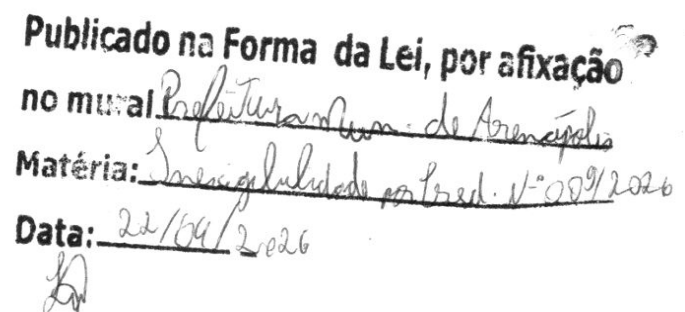 Publicado na Forma da Lei, por afixação
no mural Prefeitura Mun. de Arenápolis
Matéria: Inexigibilidade por Cred. Nº 009/2026
Data: 22/04/2026